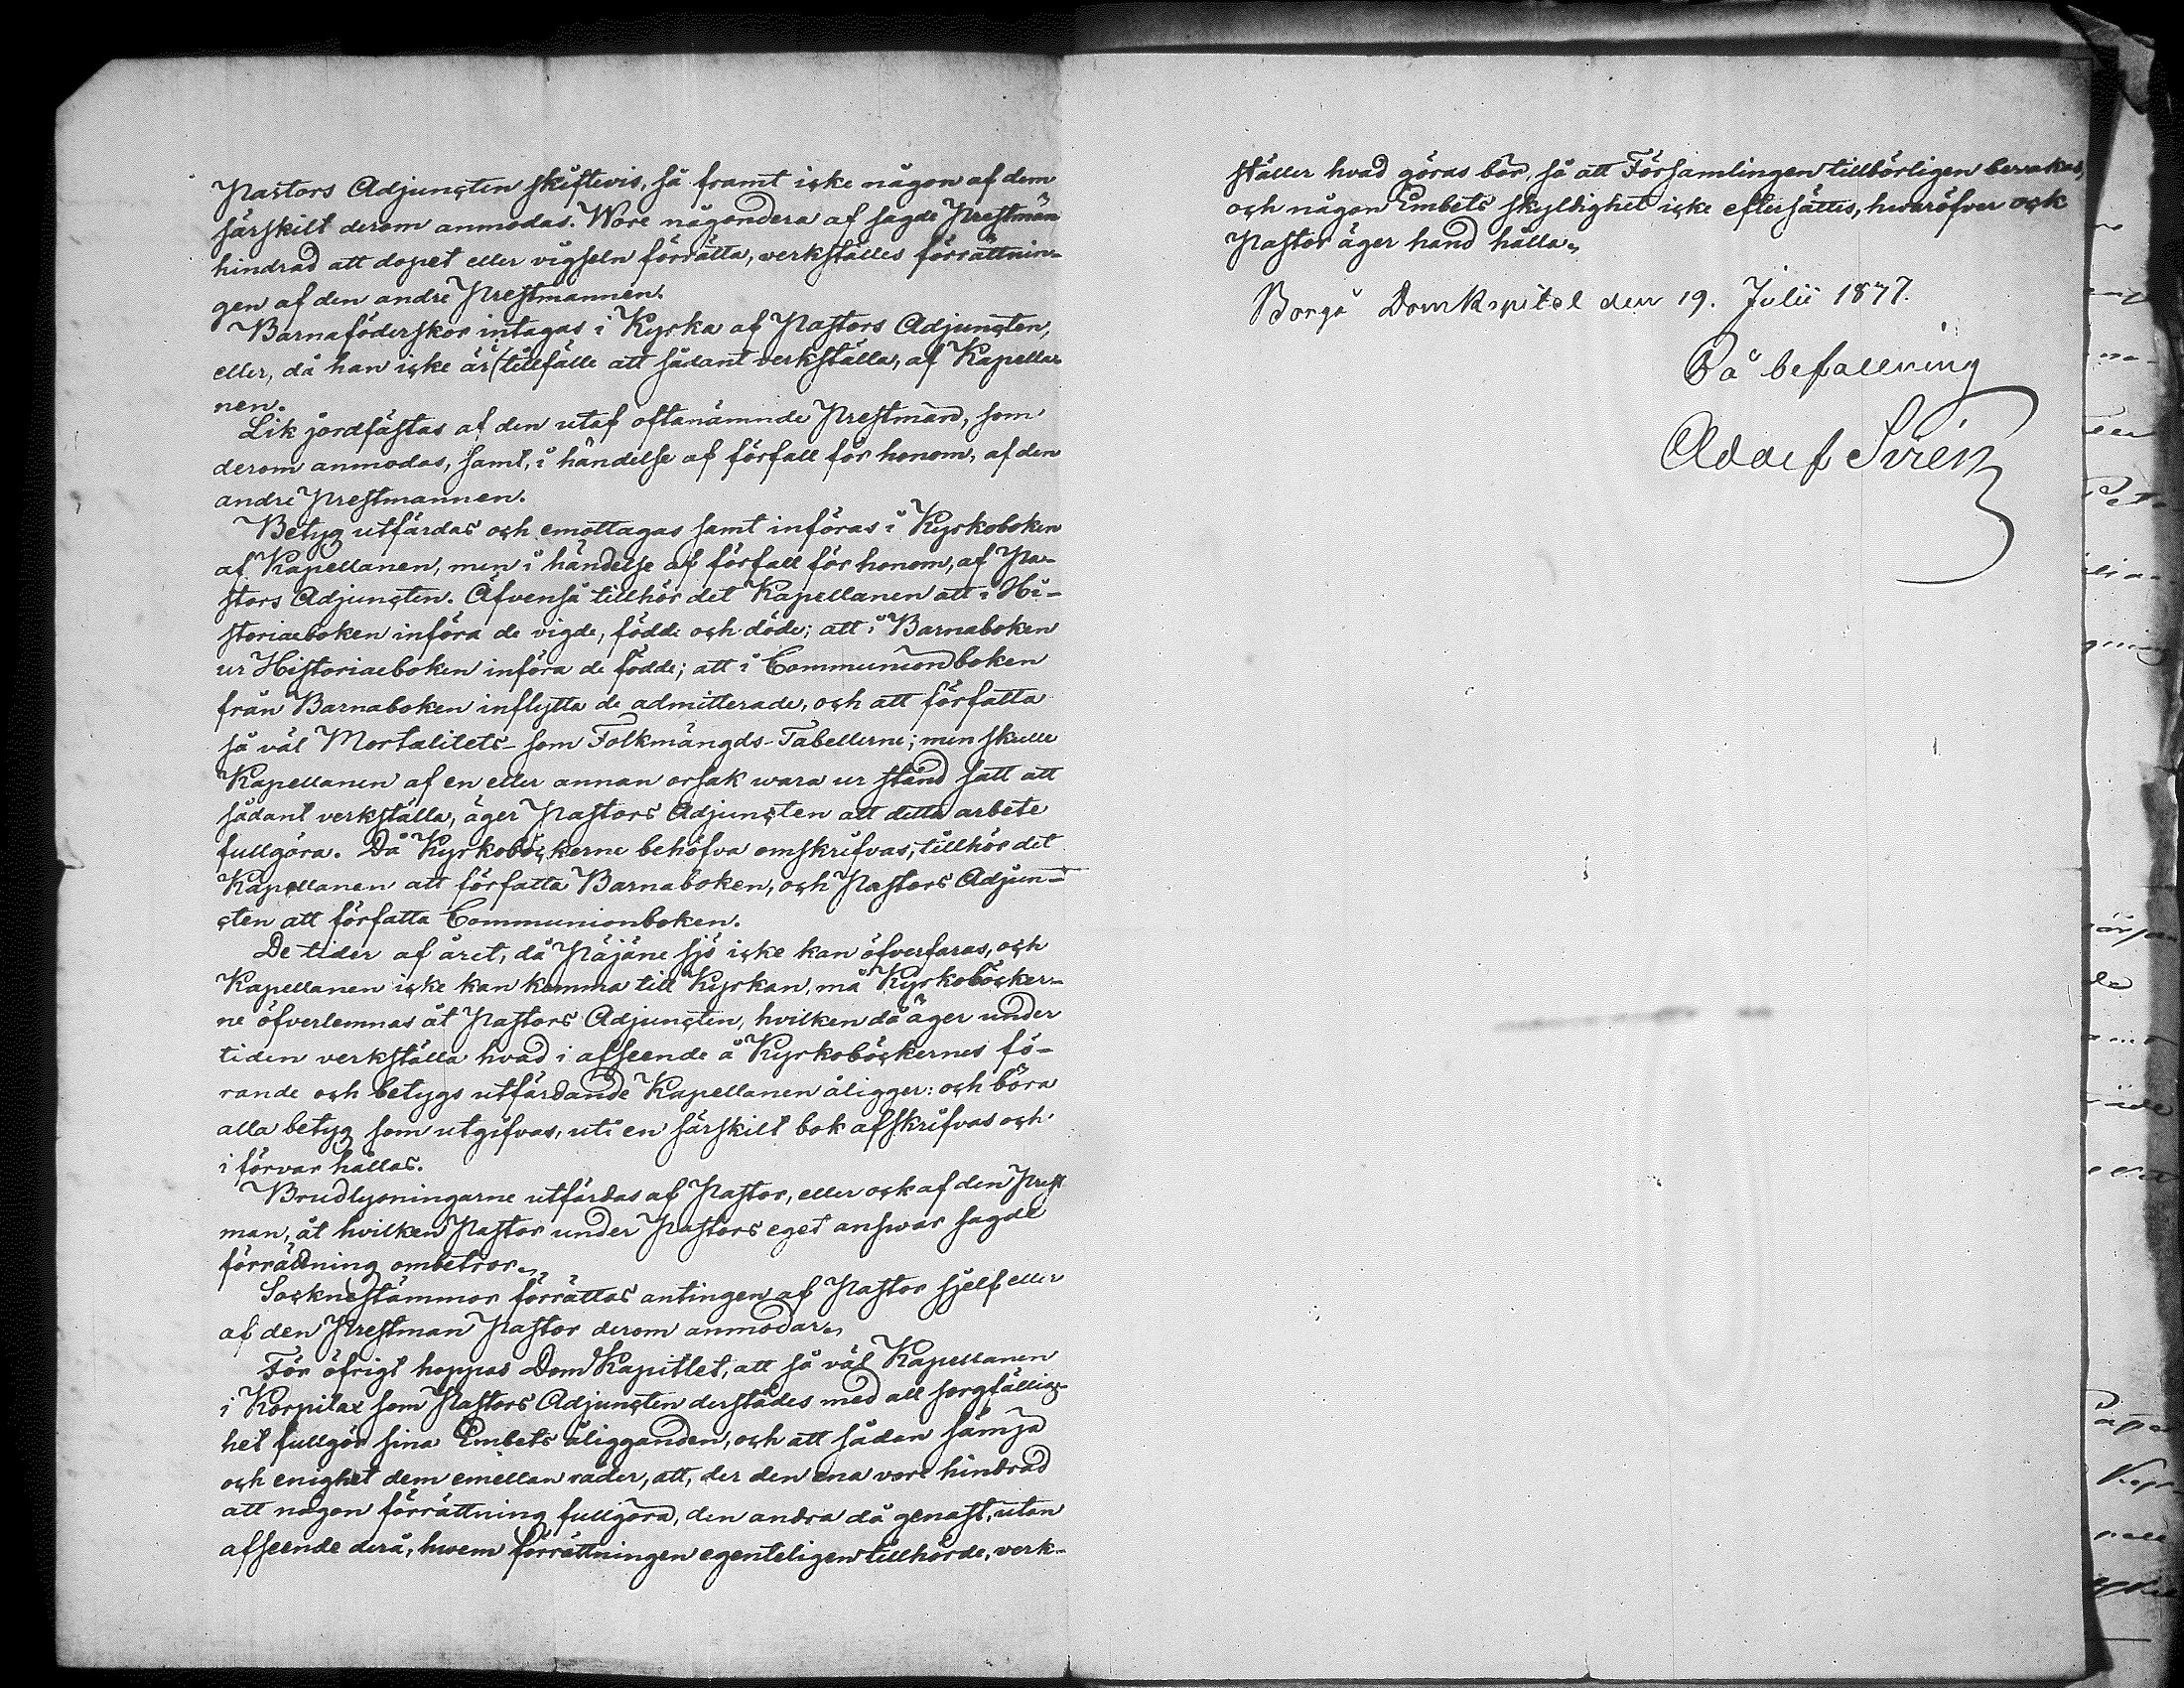 Pastors Adjuncten skiftevis, så framt icke någon af dem
särskilt derom anmodas. Wore någondera af sagde Prestmän
hindrad att dopet eller vigseln förrätta, verkställes förrättnin-
gen af den andre Prestmannen.
Barnaföderskor intagas i Kyrka af Pastors Adjuncten,
eller, då han icke är i tillfälle att sådant verkställa, af Kapella-
nen.
Lik jordfästas af den utaf oftanämnde Prestmän, som
derom anmodas, samt, i händelse af förfall för honom, af den
andre Prestmannen.
Betyg utfärdas och emottagas samt införas i Kyrkoboken
af Kapellanen, men i händelse af förfall för honom, af Pa-
stors Adjuncten. Äfvenså tillhör det Kapellanen att i Hi-
storiaeboken införa de vigde, födde och döde; att i Barnaboken
ur Historiaeboken införa de födde; att i Communionboken
från Barnaboken inflytta de admitterade, och att författa
så väl Mortalitets- som Folkmängds-Tabellerne; men skulle
Kapellanen af en eller annan orsak wara ur stånd satt att
sådant verkställa, äger Pastors Adjuncten att detta arbete
fullgöra. Då Kyrkoböckerne behöfva omskrifvas, tillhör det
Kapellanen att författa Barnaboken, och Pastors Adjun-
cten att författa Communionboken.
De tider af året, då Päjäne sjö icke kan öfverfaras, och
Kapellanen icke kan komma till Kyrkan, må Kyrkoböcker-
ne öfverlemnas åt Pastors Adjuncten, hvilken då äger under
tiden verkställa hvad i afseende å Kyrkoböckernes fö-
rande och betygs utfärdande Kapellanen åligger: och böra
alla betyg som utgifvas, uti en särskilt bok afskrifvas och
i förvar hållas.
Brudlysningarne utfärdas af Pastor, eller ock af den Prest
man, åt hvilken Pastor under Pastors eget answar sagde
förrättning ombetror.
Socknestämmor förrättas antingen af Pastor sjelf eller
af den Prestman Pastor derom anmodar.
För öfrigt hoppas DomKapitlet, att så väl Kapellanen
i Korpilax som Pastors Adjuncten derstädes med all sorgfällig-
het fullgör sina Embets åligganden, och att sådan sämja
och enighet dem emellan råder, att, der den ena vore hindrad
att någon förrättning fullgöra, den andra då genast, utan
afseende derå, hwem förrättningen egenteligen tillhörde, verk-
ställer hvad göras bör, så att Församlingen tillbörligen bevakas,
och någon Embets skyldighet icke eftersättes, hwaröfver ock
Pastor äger hand hålla.
Borgå Domkapitel den 19. Julii 1877.
På befallning
Adolf Sirén